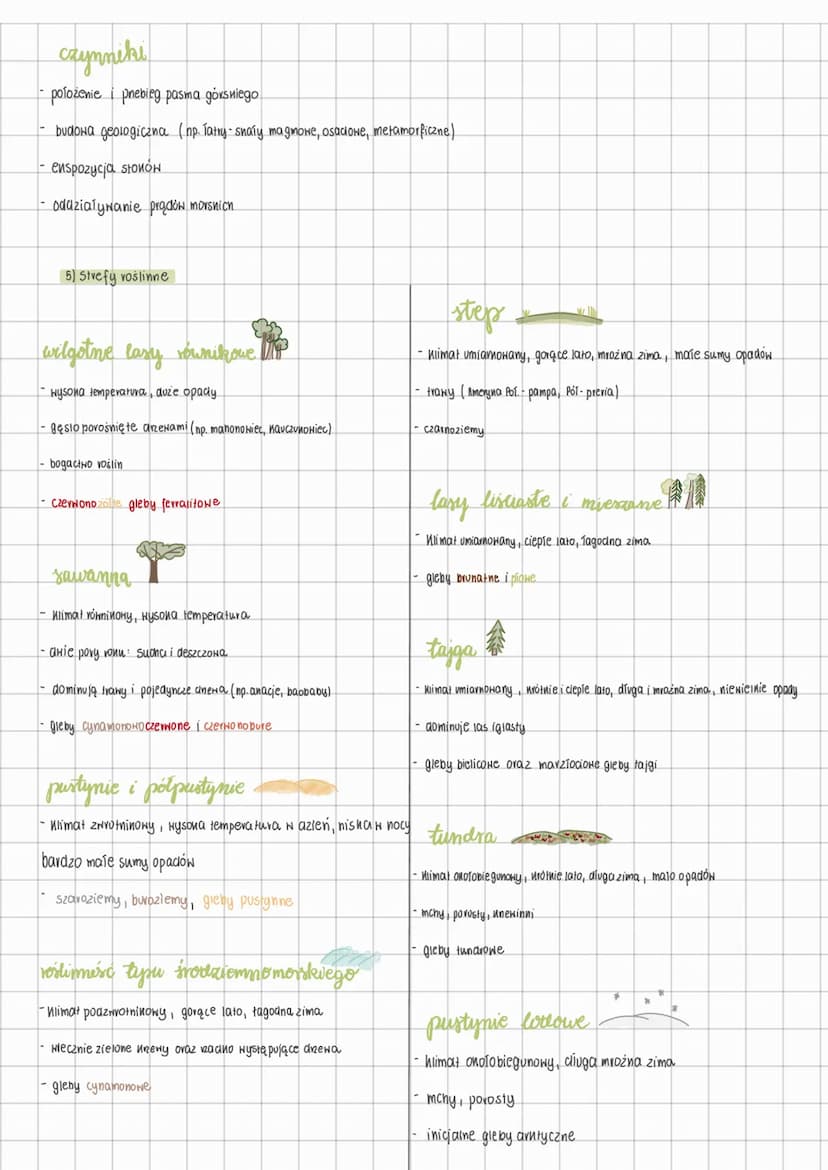 czynniki
- położenie i przebieg pasma górskiego
- budowa geologiczna (np. Tatry - skały magmowe, osadowe, metamorficzne)
- ekspozycja stoków
- oddziaływanie prądów morskich
5) Strefy roślinne
wilgotne lasy równikowe
- wysoka temperatura, duże opady
- gęsto porośnięte drzewami (np. mahoniowiec, kauczukowiec)
- bogactwo roślin
- czerwonożółte gleby ferralitowe
sawanna
- klimat równikowy, wysoka temperatura
- dwie pory roku: sucha i deszczowa
- dominują trawy i pojedyncze drzewa (np. akacje, baobaby)
- gleby cynamonowoczerwone i czerwonobure
pustynie i półpustynie
- klimat zwrotnikowy, wysoka temperatura w dzień, niska w nocy
bardzo małe sumy opadów
- szaroziemy, buroziemy, gleby pustynne
roślinność typu śródziemnomorskiego
- klimat podzwrotnikowy, gorące lato, łagodna zima
- wiecznie zielone krzewy oraz rzadko występujące drzewa
- gleby cynamonowe
step
- klimat umiarkowany, gorące lato, mroźna zima, małe sumy opadów
- trawy (Ameryka Poł. - pampa, Pół - preria)
- czarnoziemy
lasy liściaste i mieszane
- klimat umiarkowany, ciepłe lato, łagodna zima
- gleby brunatne i płowe
tajga
- klimat umiarkowany, krótkie i ciepłe lato, długa i mroźna zima, niewielkie opady
- dominuje las iglasty
- gleby bielicowe oraz marzłociowe gleby tajgi
tundra
- klimat okołobiegunowy, krótkie lato, długa zima, mało opadów
- mchy, porosty, krzewinki
- gleby tundrowe
pustynie lodowe
- klimat okołobiegunowy, długa mroźna zima
- mchy, porosty
- inicjalne gleby arktyczne